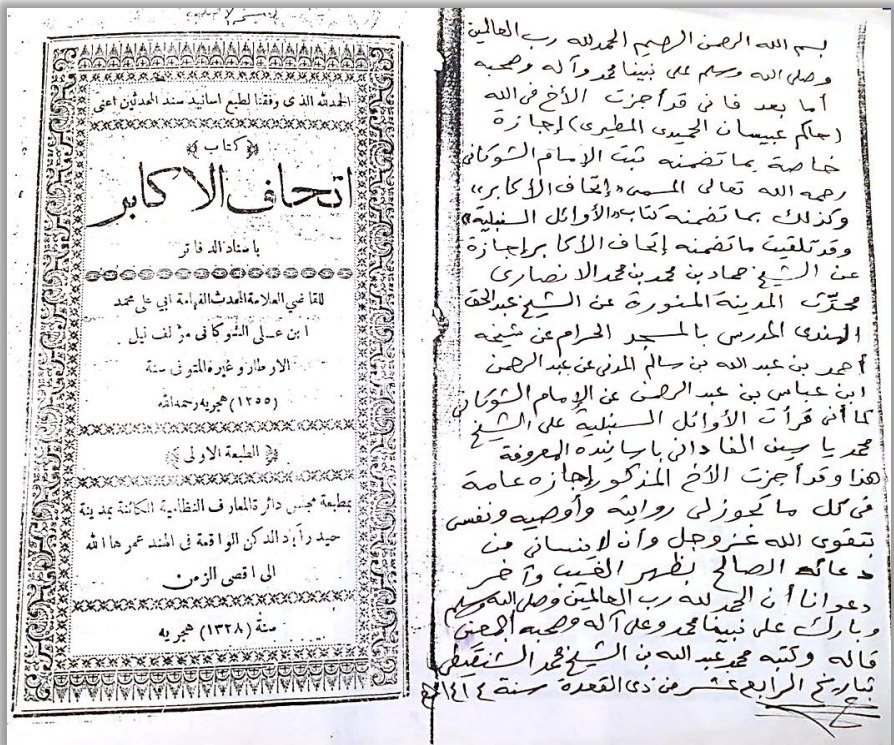 بسم الله الرحمن الرحيم الحمد لله رب العالمين
وصلى الله وسلم على نبينا محمد وآله وصحبه
أما بعد فاني قد أجزت الأخ في الله
(حاكم عبيسان الحميدي المطيري) إجازة
خاصة بما تضمنه ثبت الإمام الشوكاني
رحمه الله تعالى المسمى «إتحاف الأكابر»
وكذلك بما تضمنه كتاب «الأوائل السنبلية»
وقد تلقيت ما تضمنه إتحاف الأكابر إجازة
عن الشيخ حماد بن محمد بن محمد الانصارى
محدّث المدينة المنورة عن الشيخ عبد الحق
الهندى المدرس بالمسجد الحرام عن شيخه
أحمد بن عبد الله بن سالم المدنى عن عبد الرحمن
ابن عباس بن عبد الرحمن عن الإمام الشوكاني
كما أني قرأت الأوائل السنبلية على الشيخ
محمد ياسين الفاداني بأسانيده المعروفة
هذا وقد أجزت الأخ المذكور إجازه عامة
في كل ما تجوز لى روايته وأوصيه ونفسي
بتقوى الله عز وجل وأن لا ينساني من
دعائه الصالح بظهر الغيب وآخر
دعوانا أن الحمد لله رب العالمين وصلى الله وسلم
وبارك على نبينا محمد وعلى آله وصحبه أجمعين
قاله وكتبه محمد عبد الله بن الشيخ محمد الشنقيطي
بتاريخ الرابع عشر من ذى القعدة سنة ١٤١٤ هـ
الحمد لله الذى وفقنا لطبع اسانيد سند المحدثين اعنى
﴿ كتاب ﴾
اتحاف الاكابر
باسناد الدفاتر
للقاضي العلامة المحدث الفهامة ابي على محمد
ابن عسلى الشوكانى مؤلف نيل
الاوطار وغيره المتوفى سنة
(١٢٥٥) هجريه رحمه الله
﴿ الطبعة الاولى ﴾
بمطبعة مجلس دائرة المعارف النظامية الكائنة بمدينة
حيدرآباد الدكن الواقعة فى الهند عمرها الله
الى اقصى الزمن
سنة (١٣٢٨) هجريه